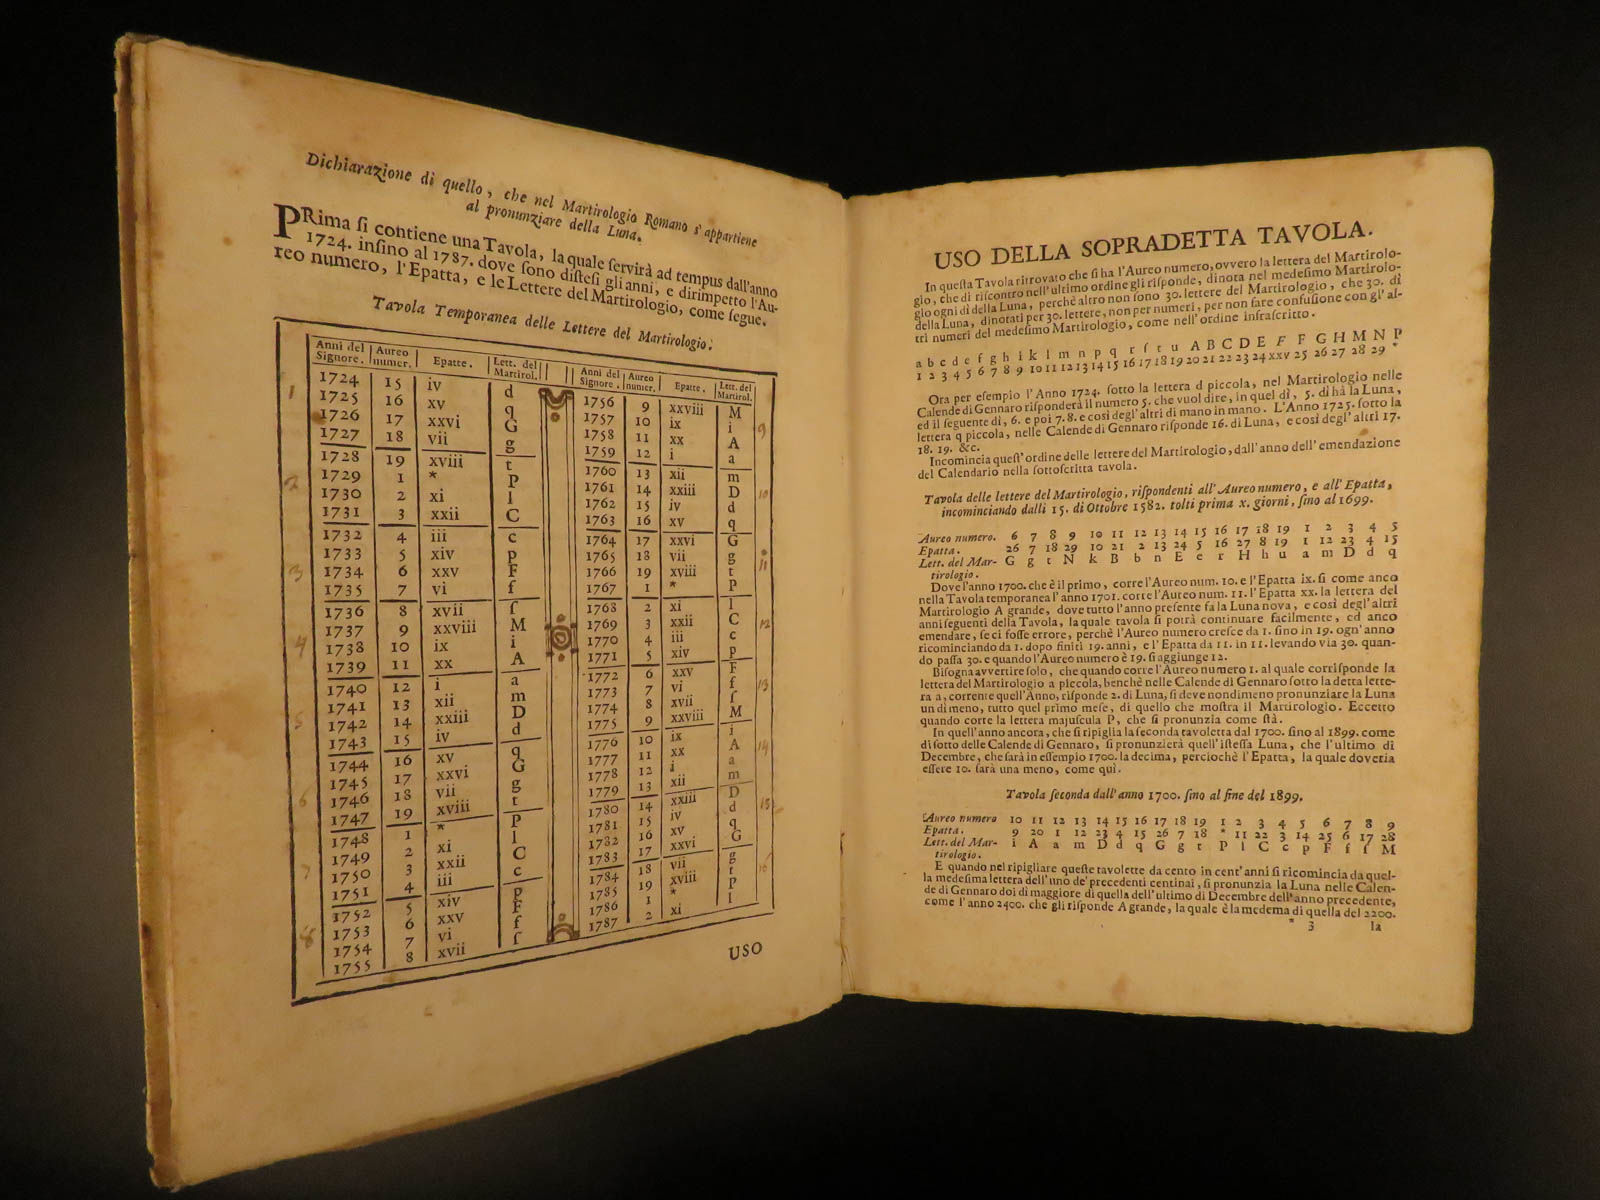 Dichiarazione di quello, che nel Martirologio Romano s'appartiene
al pronunziare della Luna.
PRima ſi contiene una Tavola, la quale ſervirà ad tempus dall'anno
1724. inſino al 1787. dove ſono diſteſi gli anni, e dirimpetto l'Au-
reo numero, l'Epatta, e le Lettere del Martirologio, come ſegue.
Tavola Temporanea delle Lettere del Martirologio.
Anni del Signore. Aureo numer. Epatte. Lett. del Martirol.
1724 15 iv d
1725 16 xv q
1726 17 xxvi G
1727 18 vii g
1728 19 xviii t
1729 1 * P
1730 2 xi l
1731 3 xxii C
1732 4 iii c
1733 5 xiv p
1734 6 xxv F
1735 7 vi f
1736 8 xvii ſ
1737 9 xxviii M
1738 10 ix i
1739 11 xx A
1740 12 i a
1741 13 xii m
1742 14 xxiii D
1743 15 iv d
1744 16 xv q
1745 17 xxvi G
1746 18 vii g
1747 19 xviii t
1748 1 * P
1749 2 xi l
1750 3 xxii C
1751 4 iii c
1752 5 xiv p
1753 6 xxv F
1754 7 vi f
1755 8 xvii ſ
Anni del Signore. Aureo numer. Epatte. Lett. del Martirol.
1756 9 xxviii M
1757 10 ix i
1758 11 xx A
1759 12 i a
1760 13 xii m
1761 14 xxiii D
1762 15 iv d
1763 16 xv q
1764 17 xxvi G
1765 18 vii g
1766 19 xviii t
1767 1 * P
1768 2 xi l
1769 3 xxii C
1770 4 iii c
1771 5 xiv p
1772 6 xxv F
1773 7 vi f
1774 8 xvii ſ
1775 9 xxviii M
1776 10 ix i
1777 11 xx A
1778 12 i a
1779 13 xii m
1780 14 xxiii D
1781 15 iv d
1782 16 xv q
1783 17 xxvi G
1784 18 vii g
1785 19 xviii t
1786 1 * P
1787 2 xi l
1
2
3
4
5
6
7
8
9
10
11
12
13
14
15
16
USO
USO DELLA SOPRADETTA TAVOLA.
In queſta Tavola ritrovato che ſi ha l'Aureo numero, ovvero la lettera del Martirolo-
gio, che di riſcontro nell'ultimo ordine gli riſponde, dinota nel medeſimo Martirolo-
gio ogni dì della Luna, perchè altro non ſono 30. lettere del Martirologio, che 30. dì
della Luna, dinotati per 30. lettere, non per numeri, per non fare confuſione con gl' al-
tri numeri del medeſimo Martirologio, come nell'ordine infraſcritto.
a b c d e f g h i k l m n p q r ſ t u A B C D E F F G H M N P
1 2 3 4 5 6 7 8 9 10 11 12 13 14 15 16 17 18 19 20 21 22 23 24 xxv 25 26 27 28 29 *
Ora per eſempio l'Anno 1724. ſotto la lettera d piccola, nel Martirologio nelle
Calende di Gennaro riſponderà il numero 5. che vuol dire, in quel dì, 5. dì hà la Luna,
ed il ſeguente dì, 6. e poi 7. 8. e così degl'altri di mano in mano. L'Anno 1725. ſotto la
lettera q piccola, nelle Calende di Gennaro riſponde 16. di Luna, e così degl'altri 17.
18. 19. &c.
Incomincia queſt'ordine delle lettere del Martirologio, dall'anno dell'emendazione
del Calendario nella ſottoſcritta tavola.
Tavola delle lettere del Martirologio, riſpondenti all'Aureo numero, e all'Epatta,
incominciando dalli 15. di Ottobre 1582. tolti prima x. giorni, ſino al 1699.
Aureo numero. 6 7 8 9 10 11 12 13 14 15 16 17 18 19 1 2 3 4 5
Epatta. 26 7 18 29 10 21 2 13 24 5 16 27 8 19 1 12 23 4 15
Lett. del Mar- G g t N k B b n E e r H h u a m D d q
tirologio.
Dove l'anno 1700. che è il primo, corre l'Aureo num. 10. e l'Epatta ix. ſi come anco
nella Tavola temporanea l'anno 1701. corre l'Aureo num. 11. l'Epatta xx. la lettera del
Martirologio A grande, dove tutto l'anno preſente fa la Luna nova, e così degl'altri
anni ſeguenti della Tavola, la quale tavola ſi potrà continuare facilmente, ed anco
emendare, ſe ci foſſe errore, perchè l'Aureo numero creſce da 1. ſino in 19. ogn'anno
ricominciando da 1. dopo finiti 19. anni, e l'Epatta da 11. in 11. levando via 30. quan-
do paſſa 30. e quando l'Aureo numero è 19. ſi aggiunge 12.
Biſogna avvertire ſolo, che quando corre l'Aureo numero 1. al quale corriſponde la
lettera del Martirologio a piccola, benchè nelle Calende di Gennaro ſotto la detta lette-
ra a, corrente quell'Anno, riſponde 2. di Luna, ſi deve nondimeno pronunziare la Luna
un dì meno, tutto quel primo meſe, di quello che moſtra il Martirologio. Eccetto
quando corre la lettera majuſcula P, che ſi pronunzia come ſtà.
In quell'anno ancora, che ſi ripiglia la ſeconda tavoletta dal 1700. ſino al 1899. come
di ſotto delle Calende di Gennaro, ſi pronunzierà quell'iſteſſa Luna, che l'ultimo di
Decembre, che ſarà in eſſempio 1700. la decima, perciochè l'Epatta, la quale doveria
eſſere 10. ſarà una meno, come quì.
Tavola ſeconda dall'anno 1700. ſino al fine del 1899.
Aureo numero 10 11 12 13 14 15 16 17 18 19 1 2 3 4 5 6 7 8 9
Epatta. 9 20 1 12 23 4 15 26 7 18 * 11 22 3 14 25 6 17 28
Lett. del Mar- i A a m D d q G g t P l C c p F f ſ M
tirologio.
E quando nel ripigliare queſte tavolette da cento in cent'anni ſi ricomincia da quel-
la medeſima lettera dell'uno de' precedenti centinai, ſi pronunzia la Luna nelle Calen-
de di Gennaro doi di maggiore di quella dell'ultimo di Decembre dell'anno precedente,
come l'anno 2400. che gli riſponde A grande, la quale è la medema di quella del 2200.
* 3 la